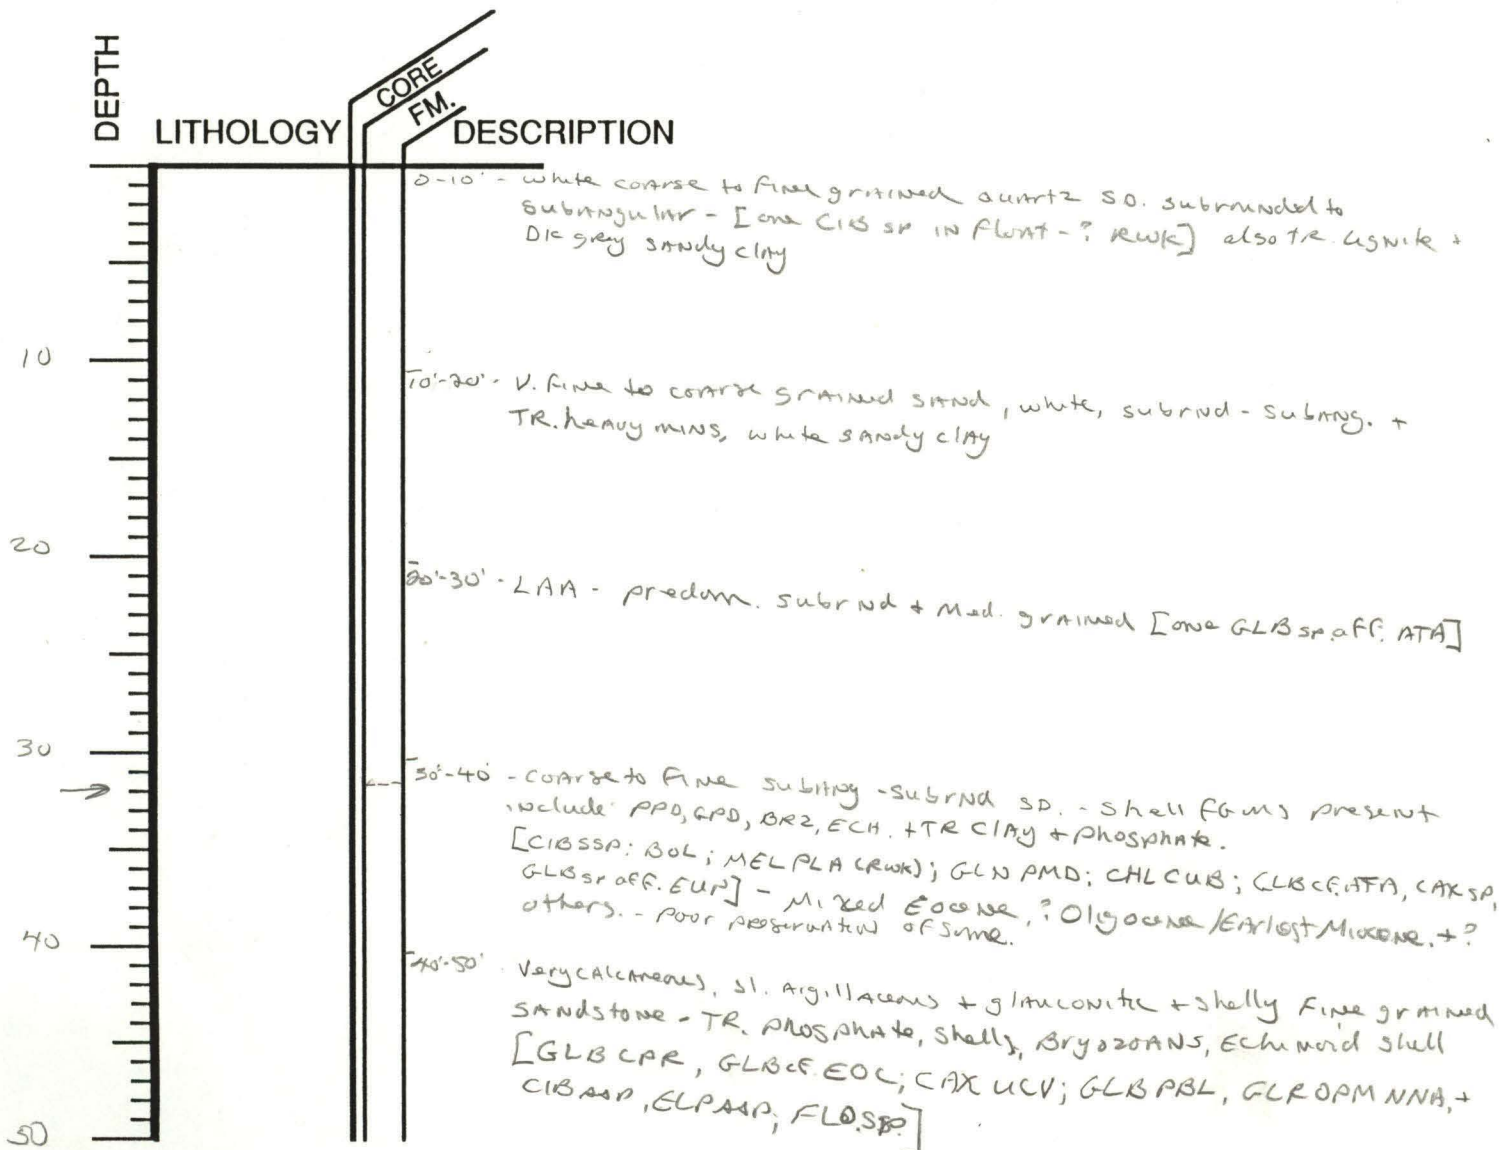 DEPTH
LITHOLOGY
CORE
FM.
DESCRIPTION
0-10' - white coarse to fine grained quartz SD. subrounded to
subangular - [one CIB SP IN float - ? RWK] also TR. lignite +
DK grey SANdy clAy
10
10'-20' - V. fine to coarse grained sand, white, subrnd - subang. +
TR. heavy mins, white sandy clay
20
20'-30' - LAA - predom. subrnd + Med. grained [one GLB sp. aff. ATA]
30
30'-40' - coarse to fine subang - subrnd SD. - shell fgmts present
include PPD, GPD, BRZ, ECH. + TR clay + phosphate.
[CIBSSP; BOL; MEL PLA (RWK); GLN PMD; CHL CUB; GLB CF. ATA, CAX SP,
GLB sp aff. EUP] - Mixed Eocene, ? Oligocene/Earliest Miocene. + ?
others. - poor preservation of some.
40
40'-50' Very calcareous, sl. Argillaceous + glauconitic + shelly fine grained
SANDstone - TR. phosphate, shells, Bryozoans, Echinoid shell
[GLB CPR, GLB CF. EOC; CAX UCV; GLB PBL, GLROPM NNA, +
CIB, FLO. SP.]
50